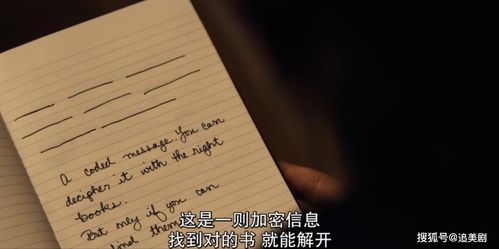 A coded message. You can
decipher it with the right
books.
But only if you can
find them
这是一则加密信息
找到对的书 就能解开
搜狐号@追美剧